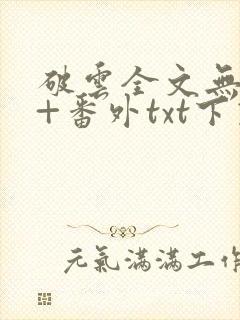 破雲全文無
+番外txt下
元氣滿滿工作